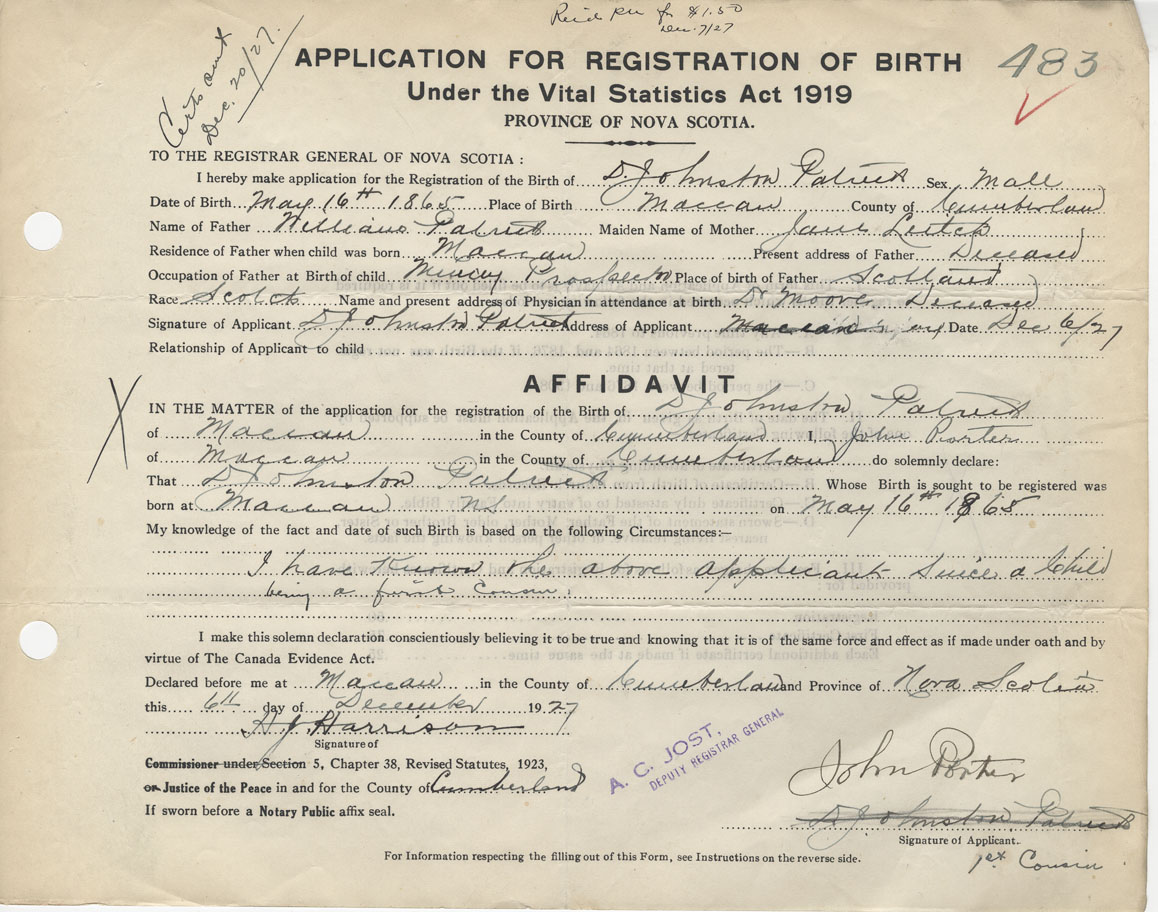 Rec'd for $1.50
Dec. 7/27
Certs sent
Dec. 20/27.
483
APPLICATION FOR REGISTRATION OF BIRTH
Under the Vital Statistics Act 1919
PROVINCE OF NOVA SCOTIA.
TO THE REGISTRAR GENERAL OF NOVA SCOTIA :
I hereby make application for the Registration of the Birth of D. Johnston Patrick Sex Male
Date of Birth May 16th 1865 Place of Birth Maccan County of Cumberland
Name of Father William Patrick Maiden Name of Mother Jane Leitch
Residence of Father when child was born Maccan Present address of Father Deceased
Occupation of Father at Birth of child Mining Prospector Place of birth of Father Scotland
Race Scotch Name and present address of Physician in attendance at birth Dr Moore Deceased
Signature of Applicant D Johnston Patrick Address of Applicant Maccan Date Dec 6/27
Relationship of Applicant to child
AFFIDAVIT
IN THE MATTER of the application for the registration of the Birth of D Johnston Patrick
of Maccan in the County of Cumberland I, John Porter
of Maccan in the County of Cumberland do solemnly declare:
That D Johnston Patrick Whose Birth is sought to be registered was
born at Maccan NS on May 16th 1865
My knowledge of the fact and date of such Birth is based on the following Circumstances:—
I have Known the above applicant since a Child
being a first Cousin.
I make this solemn declaration conscientiously believing it to be true and knowing that it is of the same force and effect as if made under oath and by
virtue of The Canada Evidence Act.
Declared before me at Maccan in the County of Cumberland and Province of Nova Scotia
this 6th day of December 1927
A. J. Harrison
Signature of
Commissioner under Section 5, Chapter 38, Revised Statutes, 1923,
or Justice of the Peace in and for the County of Cumberland
If sworn before a Notary Public affix seal.
A. C. JOST,
DEPUTY REGISTRAR GENERAL
John Porter
D Johnston Patrick
Signature of Applicant.
1st Cousin
For Information respecting the filling out of this Form, see Instructions on the reverse side.